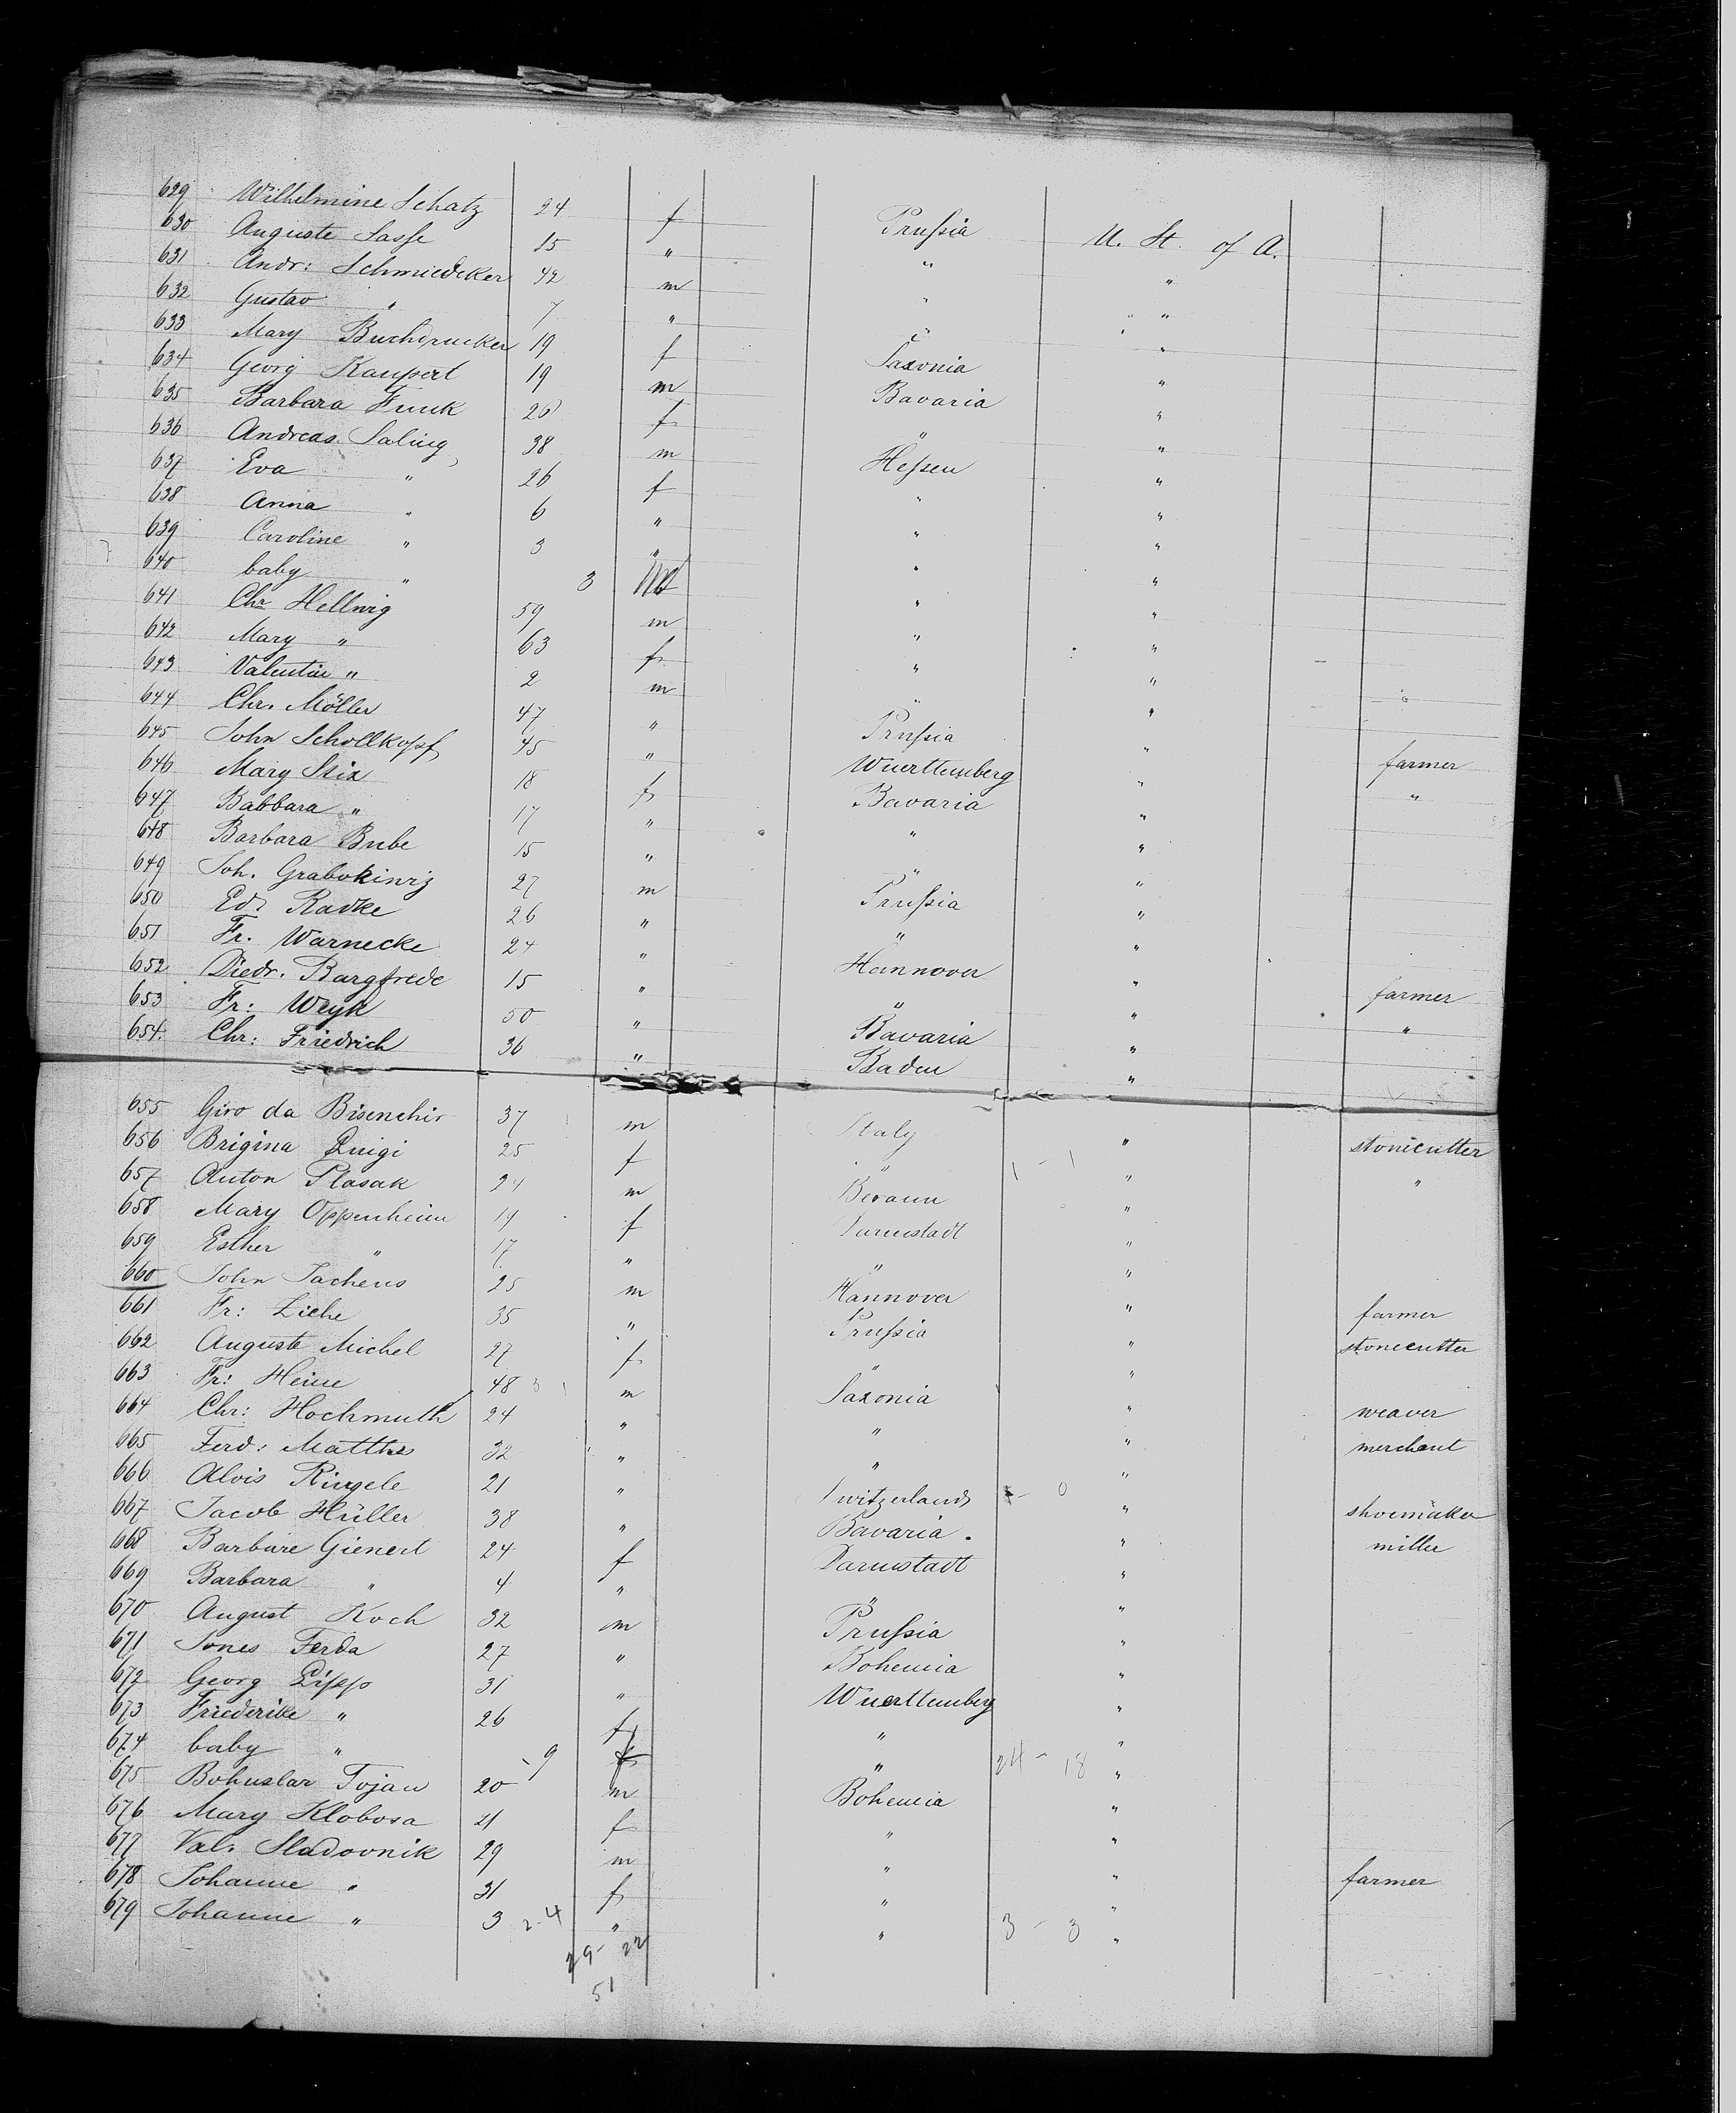 629 Wilhelmine Schatz 24 f Prussia U. St. of A.
630 Auguste Sasse 15 " " "
631 Andr: Schmiedeker 42 m " "
632 Gustav " 7 " " "
633 Mary Buchdrucker 19 f Saxonia "
634 Georg Kaupert 19 m Bavaria "
635 Barbara Funk 26 f " "
636 Andreas Saling 38 m Hessen "
637 Eva " 26 f " "
638 Anna " 6 " " "
639 Caroline " 3 " " "
640 baby " 3 " "
641 Chr Hellwig 59 m " "
642 Mary " 63 f " "
643 Valentin " 2 m " "
644 Chr. Möller 47 " Prussia " farmer
645 John Schollkopf 45 " Wuerttemberg " "
646 Mary Stix 18 f Bavaria "
647 Babbara " 17 " " "
648 Barbara Bube 15 " " "
649 Joh. Grabokinrz 27 m Prussia "
650 Ed. Radke 26 " " "
651 Fr. Warnecke 24 " Hannover " farmer
652 Diedr. Bargfrede 15 " " " "
653 Fr: Weyk 50 " Bavaria "
654. Chr: Friedrich 36 " Baden "
655 Giro da Bisenchir 37 m Italy " stonecutter
656 Brigina Luigi 25 f " 1 - 1 " "
657 Anton Plasak 24 m "
658 Mary Oppenheim 19 f Darmstadt "
659 Esther " 17 " " "
660 John Tachens 25 m Hannover " farmer
661 Fr: Liehe 35 " Prussia " stonecutter
662 Auguste Michel 27 f " "
663 Fr: Heine 48 m Saxonia " weaver
664 Chr: Hochmuth 24 " " " merchant
665 Ferd: Matthes 32 " " "
666 Alois Ringele 21 " Switzerland 0 " shoemaker
667 Jacob Hüller 38 " Bavaria. " miller
668 Barbare Gienert 24 f Darmstadt "
669 Barbara " 4 " " "
670 August Koch 32 m Prussia "
671 Jones Ferda 27 " Bohemia "
672 Georg Lipps 31 " Wuerttemberg "
673 Friederike " 26 f " "
674 baby " - 9 f " 24 - 18 "
675 Bohuslav Tojan 20 m Bohemia "
676 Mary Klobosa 21 f " "
677 Val. Sladovnik 29 m " " farmer
678 Johanne " 31 f " "
679 Johanne " 3 2-4 " " 3 - 3 "
29 - 22
51